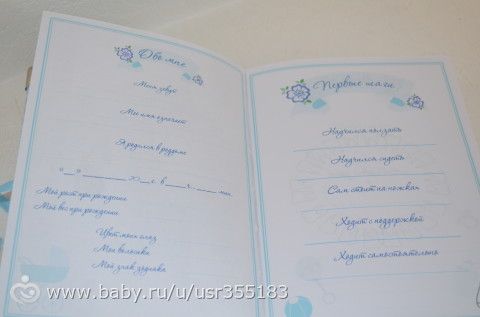 Обо мне
Меня зовут
Мое имя означает
Я родился в роддоме
"__"______20__г. в___ч.____мин.
Мой рост при рождении
Мой вес при рождении
Цвет моих глаз
Мои волосики
Мой знак зодиака
Первые шаги
Научился ползать
Научился сидеть
Сам стоит на ножках
Ходит с поддержкой
Ходит самостоятельно
www.baby.ru/u/usr355183